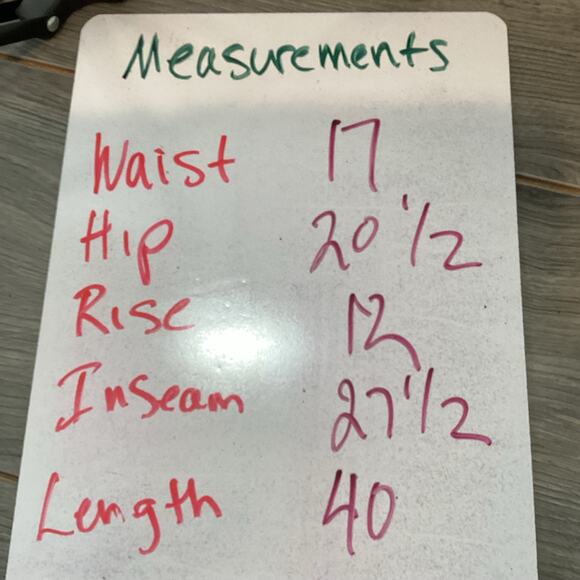 Measurements
Waist 17
Hip 20 1/2
Rise 12
Inseam 27 1/2
Length 40